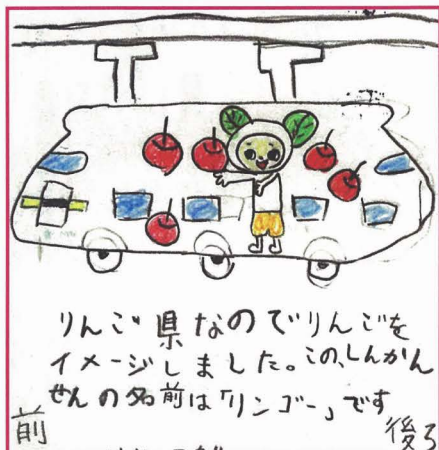 りんご県なのでりんごを
イメージしました。この、しんかん
せんの名前は「リンゴー」です
前
後ろ